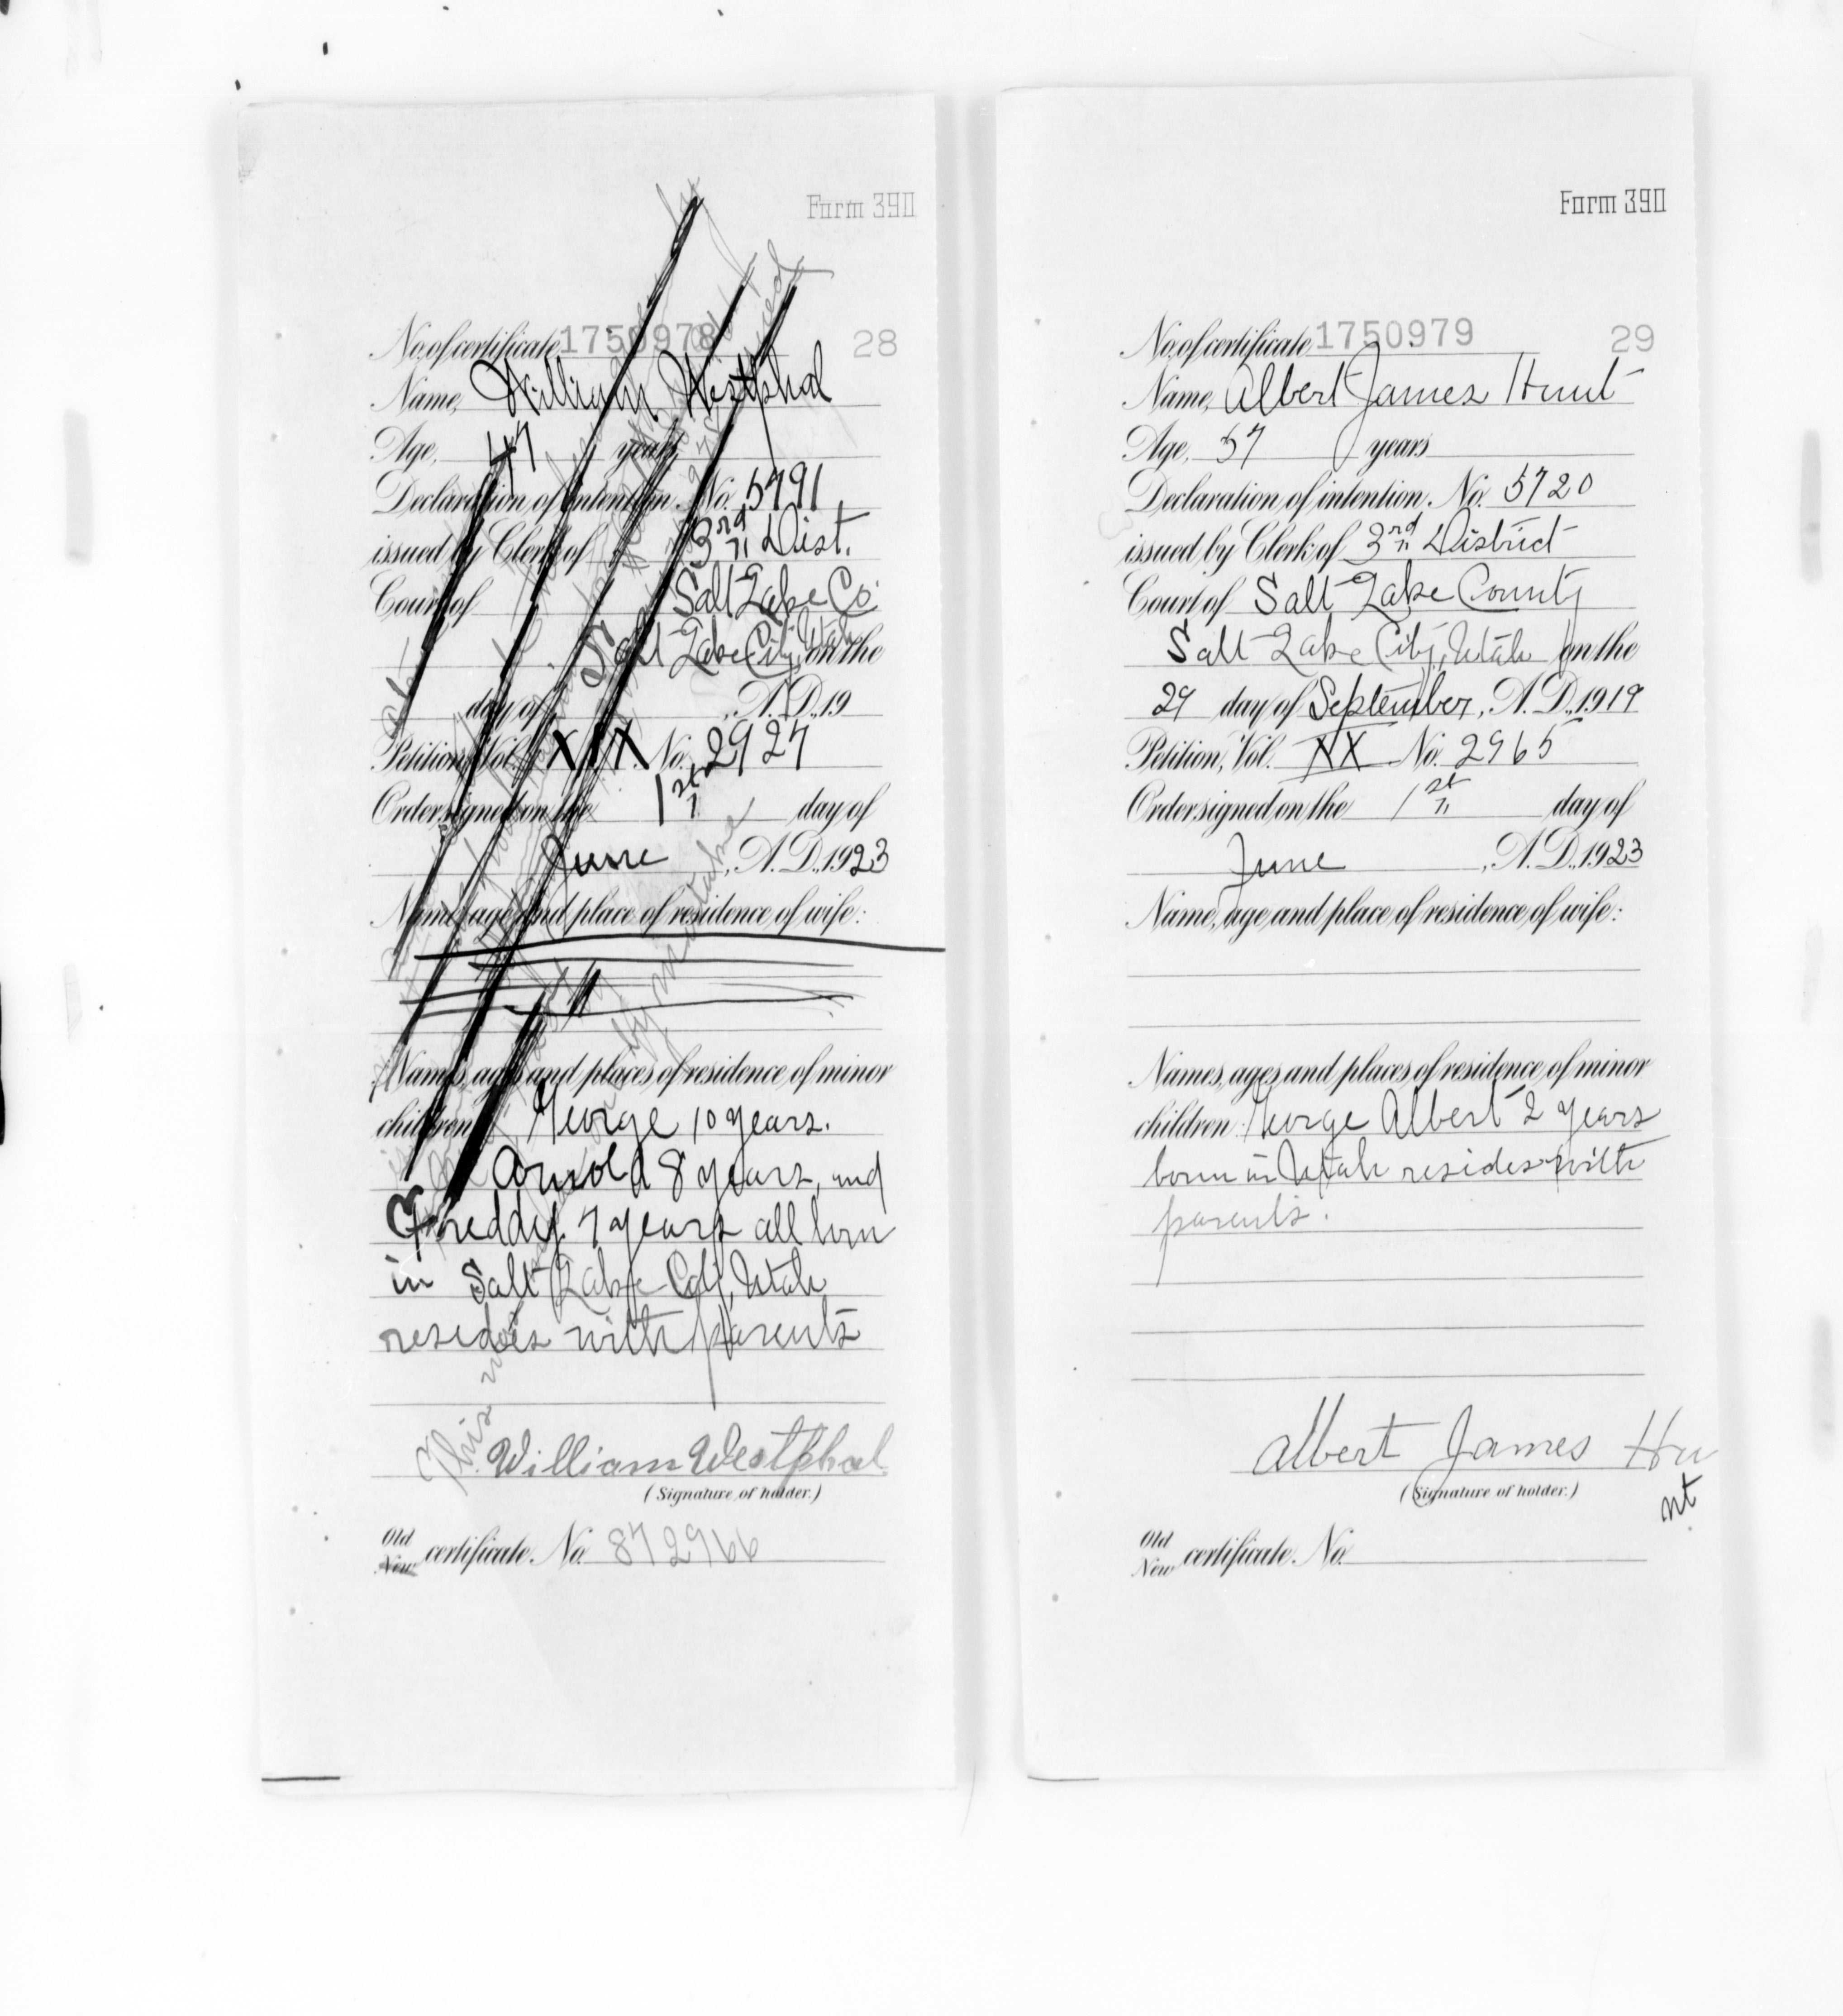 Form 390
No. of certificate, 1750978 28
Name, William Westphal
Age, 47 years
Declaration of intention, No. 5791
issued by Clerk of 3rd Dist.
Court of Salt Lake Co
Salt Lake City, Utah on the
day of , A.D., 19
Petition, Vol. XIX No. 2927
Order signed on the 1st day of
June , A.D., 1923
Name, age and place of residence of wife:
Names, ages and places of residence of minor
children George 10 years.
Arnold 8 years, and
Freddy 7 years all born
in Salt Lake City, Utah
resides with parents
This
by mistake
William Westphal
(Signature of holder.)
Old
New certificate No. 872966
Form 390
No. of certificate, 1750979 29
Name, Albert James Hunt
Age, 37 years
Declaration of intention, No. 5720
issued by Clerk of 3rd District
Court of Salt Lake County
Salt Lake City, Utah on the
29 day of September, A.D., 1919
Petition, Vol. XX No. 2965
Order signed on the 1st day of
June , A.D., 1923
Name, age and place of residence of wife:
Names, ages and places of residence of minor
children: George Albert 2 years
born in Utah resides with
parents.
Albert James Hu
nt
(Signature of holder.)
Old
New certificate No.